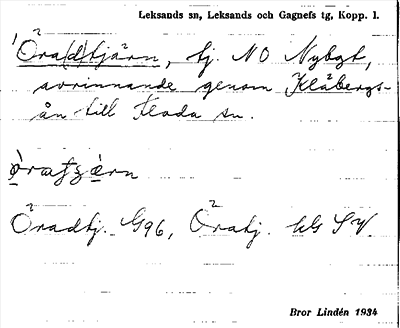 Leksands sn, Leksands och Gagnefs tg, Kopp. l.
Öra(d)tjärn, tj. NO Nybgt,
avrinnande genom Klåbergs-
ån till Floda sn.
Öradtj. G96, Öratj. hls SV.
Bror Lindén 1934